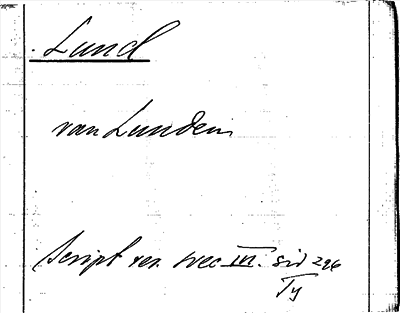 Lund
van Lunden
Script rer. svec III. sid 296
Ty